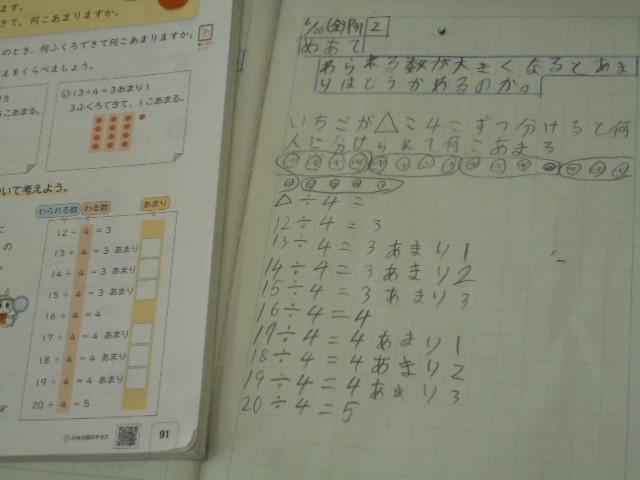 ます。
きて、何こあまりますか。
のとき、何ふくろできて何こあまりますか。
えをくらべましょう。
こあまる。
13÷4=3あまり1
3ふくろできて、1こあまる。
ついて考えよう。
わられる数 わる数 あまり
12÷4=3
13÷4=3 あまり
14÷4=3 あまり
15÷4=3 あまり
16÷4=4
17÷4=4 あまり
18÷4=4 あまり
19÷4=4 あまり
20÷4=5
91
6/20(金)P91 2
めあて
わられる数が大きくなるとあま
りはどうかわるのか。
いちごが△こ4こずつ分けると何
人に分けられて何こあまる
△÷4=
12÷4=3
13÷4=3あまり1
14÷4=3あまり2
15÷4=3あまり3
16÷4=4
17÷4=4あまり1
18÷4=4あまり2
19÷4=4あまり3
20÷4=5